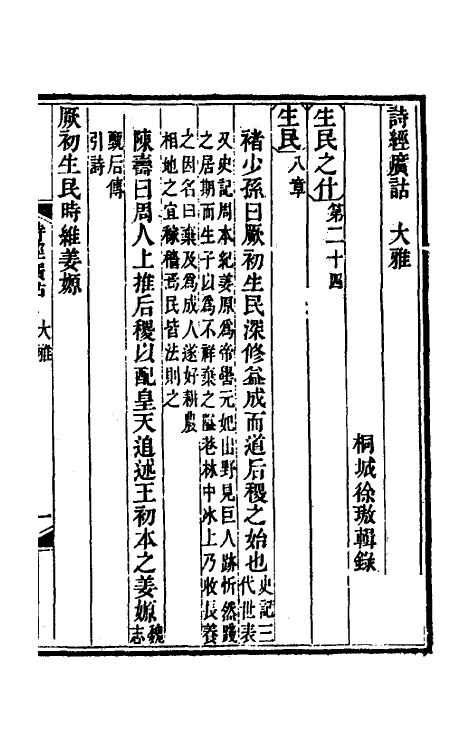 詩經廣詁　大雅
桐城徐璈輯錄
生民之什第二十四
生民八章
褚少孫曰厥初生民深修益成而道后稷之始也史記三代世表
又史記周本紀姜原爲帝嚳元妃出野見巨人跡忻然踐
之居期而生子以爲不祥棄之隘巷林中冰上乃收長養
之因名曰棄及爲成人遂好耕農
相地之宜稼穡焉民皆法則之
陳壽曰周人上推后稷以配皇天追述王初本之姜嫄魏志
甄后傳
引詩
厥初生民時維姜嫄
詩經廣詁　大雅　一